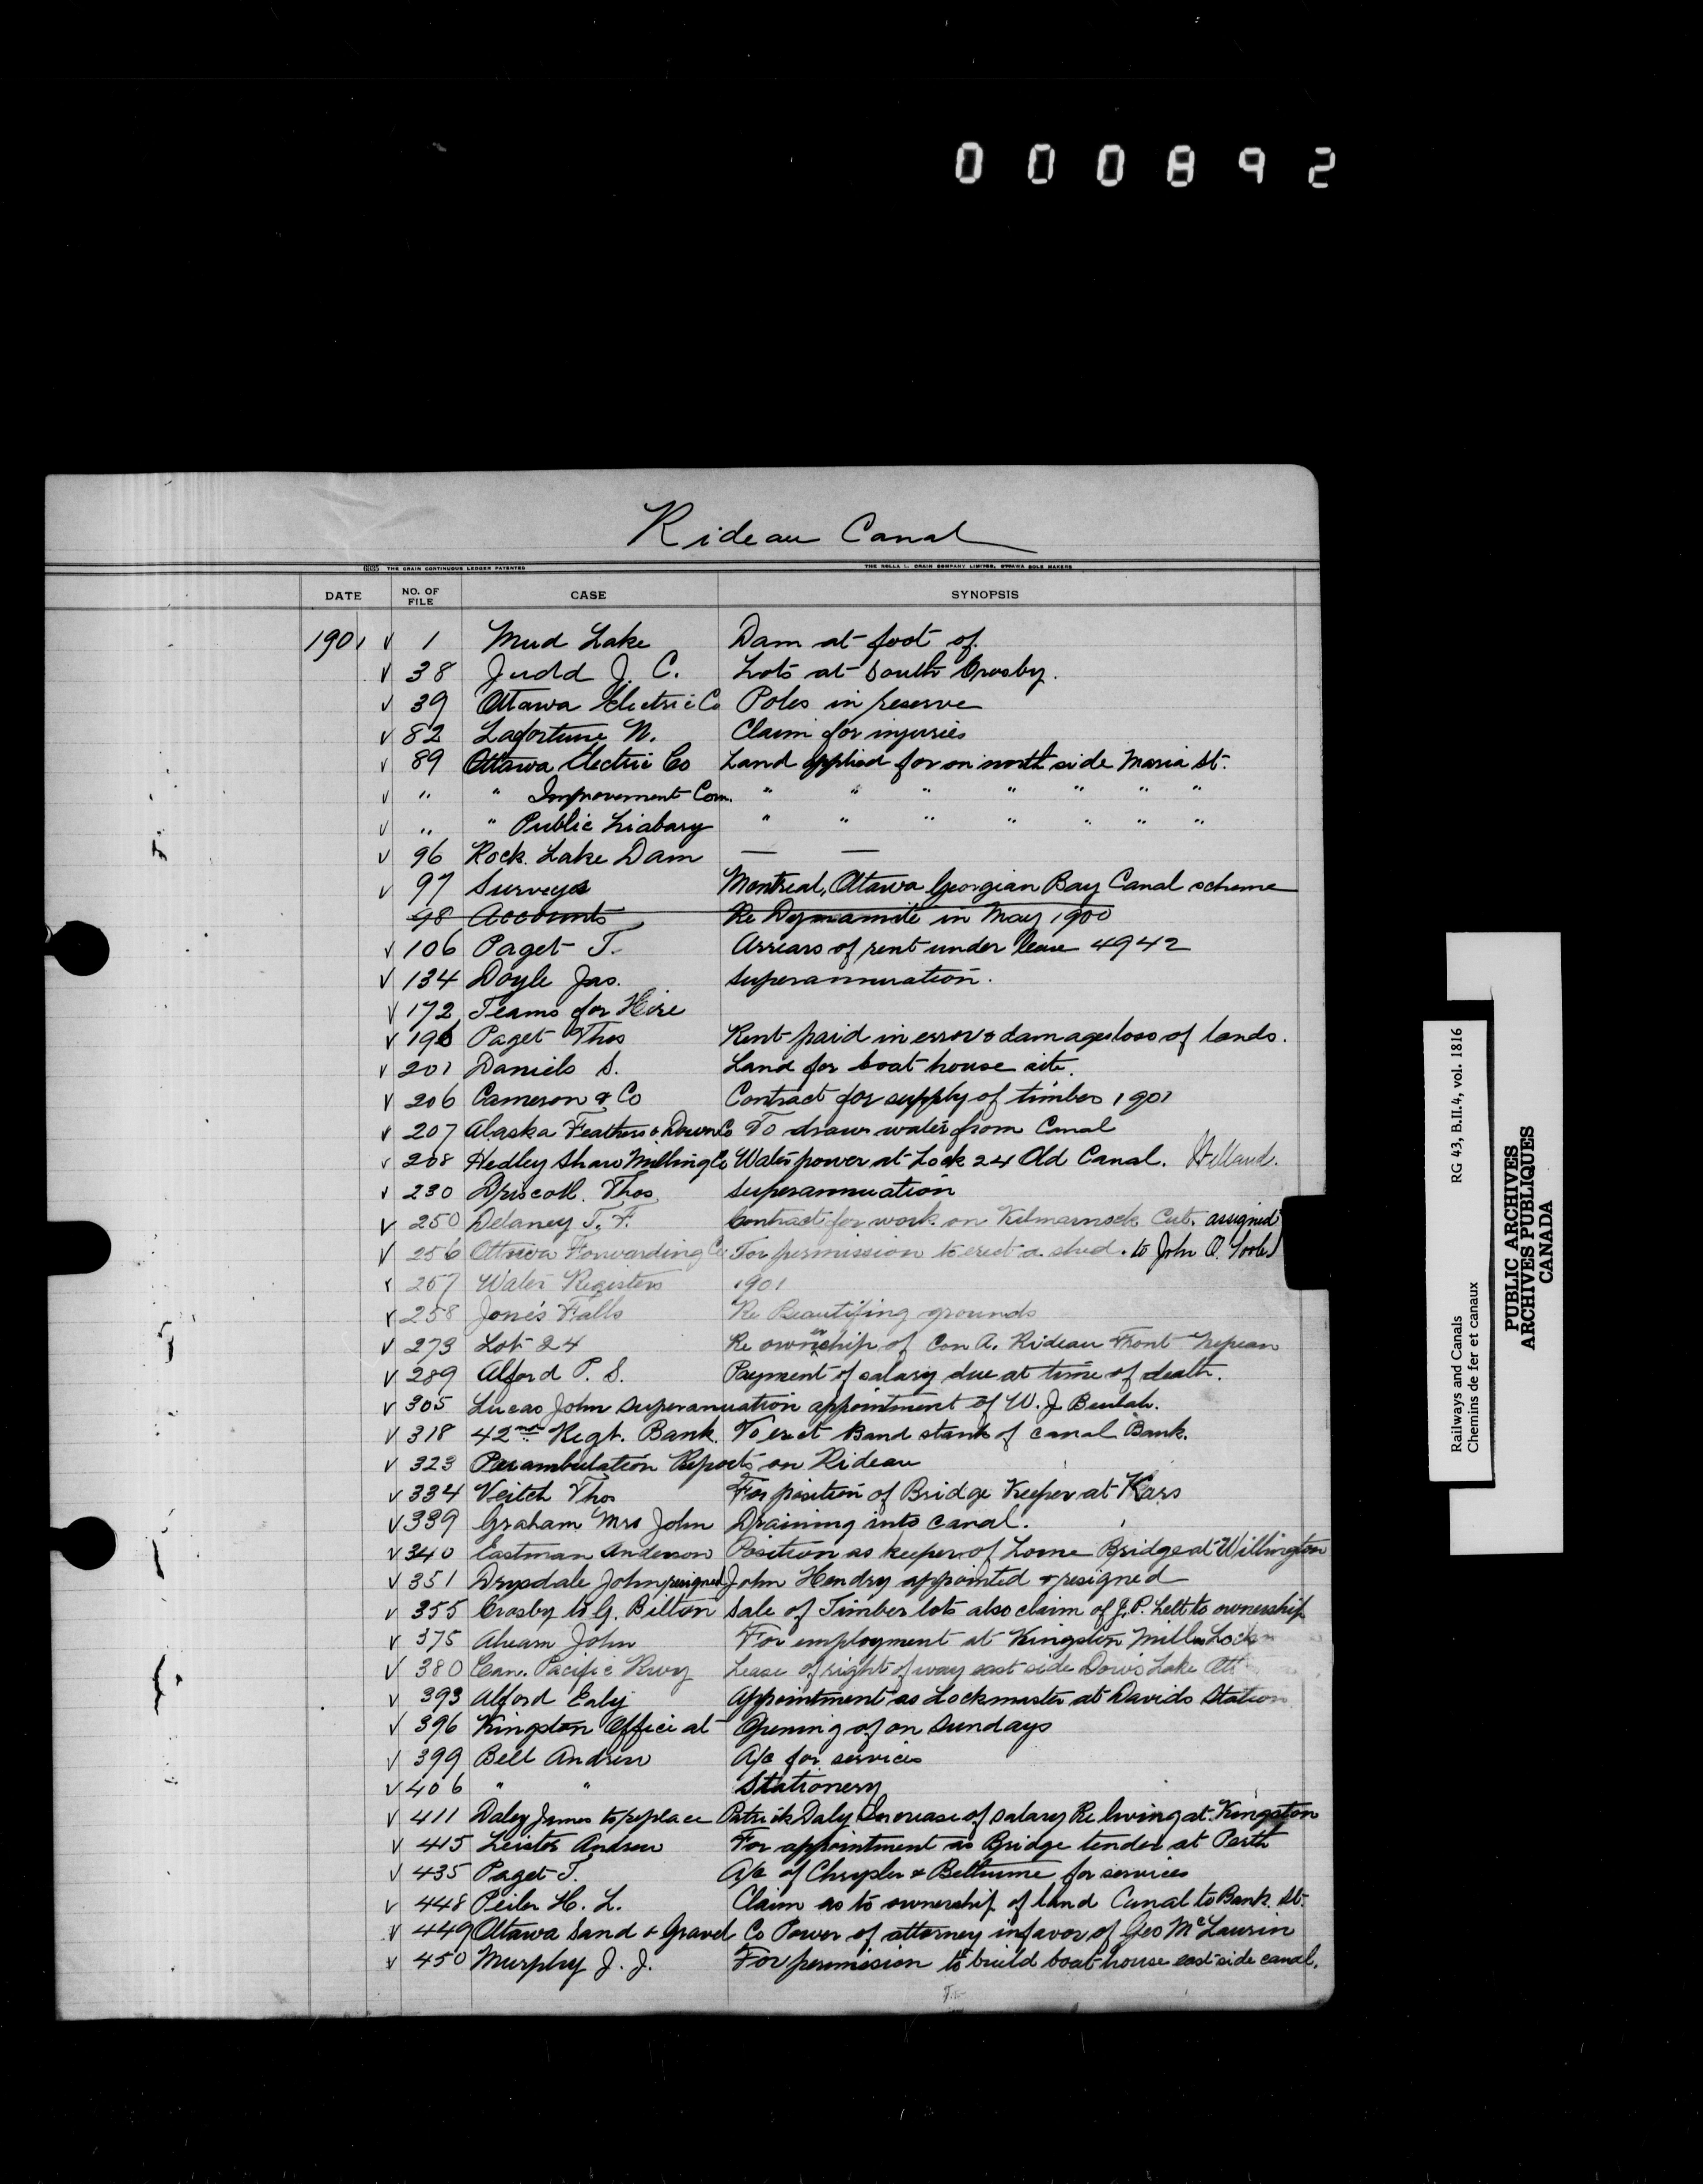 000892
Rideau Canal
6935 THE CRAIN CONTINUOUS LEDGER PATENTED THE ROLLA L. CRAIN COMPANY LIMITED, OTTAWA SOLE MAKERS
DATE NO. OF FILE CASE SYNOPSIS
1901 √ 1 Mud Lake Dam at foot of
√ 38 Judd J. C. Lots at South Crosby.
√ 39 Ottawa Electric Co Poles in reserve
√ 82 Lafortune N. Claim for injuries
√ 89 Ottawa Electric Co Land applied for on north side Maria St.
√ " " Improvement Com. " " " " " " "
√ " " Public Liabary " " " " " " "
√ 96 Rock Lake Dam — —
√ 97 Surveys Montreal, Ottawa Georgian Bay Canal scheme
98 Accounts Re Dynamite in May 1900
√ 106 Paget T. Arrears of rent under lease 4942
√ 134 Doyle Jas. Superannuation.
√ 172 Teams for Hire
√ 196 Paget Thos Rent paid in error & damages loss of lands.
√ 201 Daniels S. Land for boat house site.
√ 206 Cameron & Co Contract for supply of timber 1901
√ 207 Alaska Feathers & Down Co To draw water from Canal
√ 208 Hedley Shaw Milling Co Water power at Lock 24 Old Canal. Welland.
√ 230 Driscoll Thos. Superannuation
√ 250 Delaney T. F. Contract for work on Kilmarnock Cut. assigned
√ 256 Ottawa Forwarding Co For permission to erect a shed. to John O.
√ 257 Water Registers 1901
√ 258 Jone's Falls Re Beautifing grounds
√ 273 Lot 24 Re ownership of Con A. Rideau Front Nepean
√ 289 Alford P. S. Payment of salary due at time of death.
√ 305 Lucas John Superannuation appointment of W. J. Beulah.
√ 318 42nd Regt. Bank. To erect Band stand of canal Bank.
√ 323 Parambulation Reports on Rideau
√ 334 Veitch Thos For position of Bridge Keeper at Kars
√ 339 Graham Mrs John Draining into canal.
√ 340 Eastman Anderson Position as keeper of Lorne Bridge at Willington
√ 351 Drysdale John resigned John Hendry appointed & resigned
√ 355 Crosby W G. Bilton Sale of Timber lots also claim of J. P. Lett to ownership
√ 375 Ahearn John For employment at Kingston Mills Locks
√ 380 Can. Pacific Rwy Lease of right of way east side Dow's Lake Ott
√ 393 Alford Ealy Appointment as Lockmaster at Davids Station
√ 396 Kingston Office at Opening of on Sundays
√ 399 Bell Andrew A/c for services
√ 406 " " Stationery
√ 411 Daley James to replace Patrick Daly Increase of salary Re living at Kingston
√ 415 Leister Andrew For appointment as Bridge tender at Perth
√ 435 Paget T. A/c of Chrysler & Bethune for services
√ 448 Peiler H. L. Claim as to ownership of land Canal to Bank St.
√ 449 Ottawa Sand & Gravel Co Power of attorney in favor of Geo McLaurin
√ 450 Murphy J. J. For permission to build boat house east side canal.
Railways and Canals RG 43, B.II.4, vol. 1816
Chemins de fer et canaux
PUBLIC ARCHIVES
ARCHIVES PUBLIQUES
CANADA